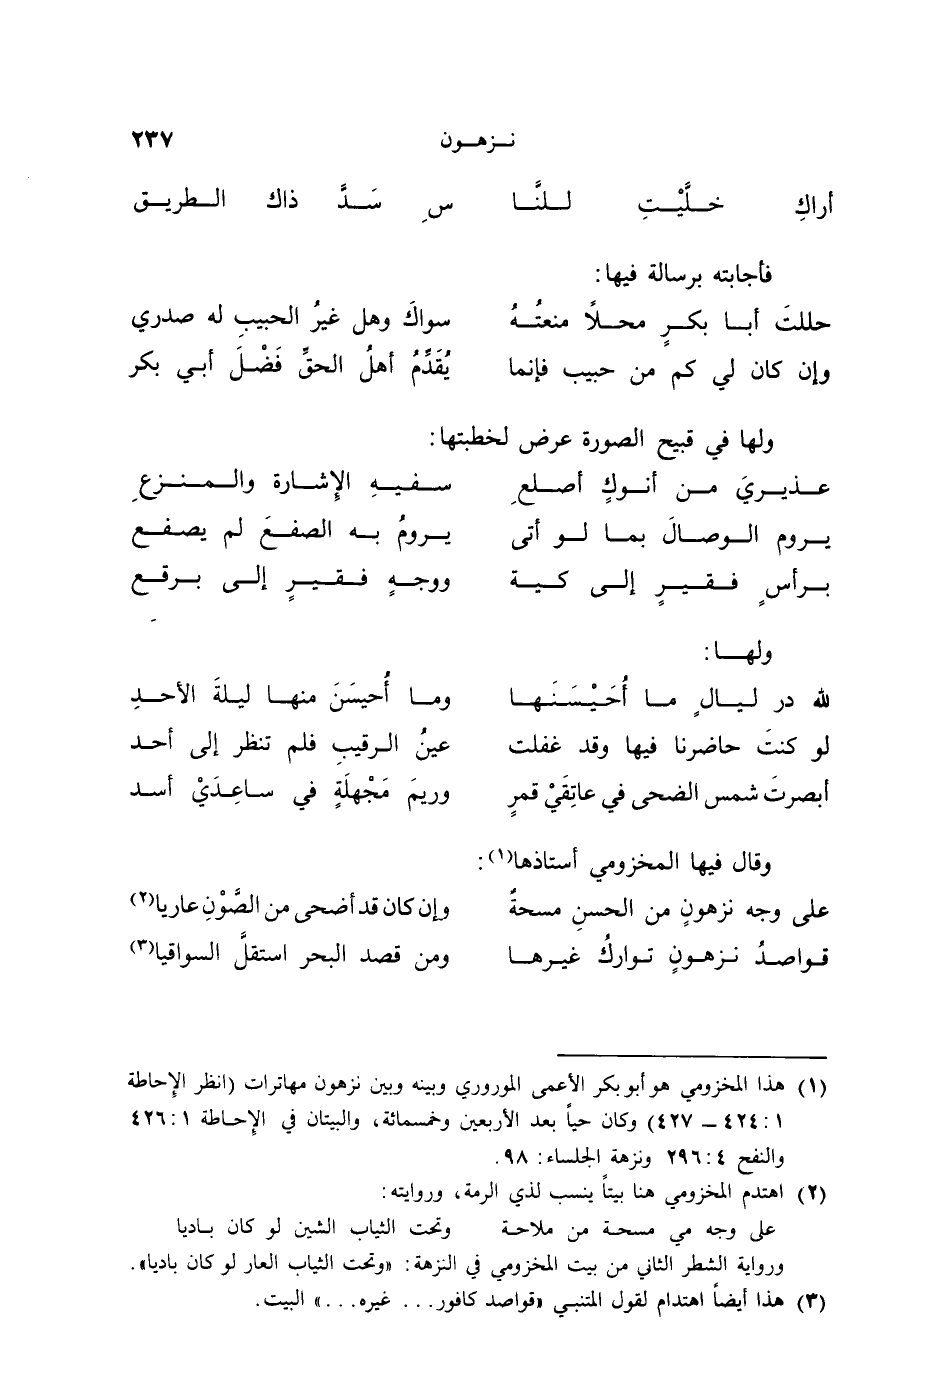 نـزهـون ٢٣٧
أراكِ خـلَّيْـتِ للنَّـا سِ سَـدَّ ذاك الـطريـق
فأجابته برسالة فيها:
حللتَ أبـا بكـرٍ محـلاً منعتُـهُ سواكَ وهل غيرُ الحبيبِ له صدري
وإن كان لي كم من حبيب فإنما يُقَدِّمُ أهلُ الحقِّ فَضْلَ أبي بكر
ولها في قبيح الصورة عرض لخطبتها:
عـذيـريَ مـن أنـوكٍ أصلـعِ سـفـيـهِ الإشـارة والـمنـزعِ
يـروم الـوصـالَ بمـا لـو أتى يـرومُ بـه الصفـعَ لم يصفـع
بـرأسٍ فـقـيـرٍ إلـى كـيـة ووجـهٍ فـقـيـرٍ إلـى بـرقـع
ولهـا:
لله در ليـالٍ مـا أُحَيْـسَـنَـهـا ومـا أُحيسَنَ منهـا ليلةَ الأحـدِ
لو كنتَ حاضرنا فيها وقد غفلت عينُ الرقيبِ فلم تنظر إلى أحد
أبصرتَ شمس الضحى في عاتِقَيْ قمرٍ وريمَ مَجْهلَةٍ في ساعِدَيْ أسد
وقال فيها المخزومي أستاذها(١):
على وجه نزهونٍ من الحسنِ مسحةٌ وإن كان قد أضحى من الصَّوْنِ عاريا(٢)
قـواصـدُ نـزهـونٍ تـواركُ غيـرهـا ومن قصد البحر استقلَّ السواقيا(٣)
(١) هذا المخزومي هو أبو بكر الأعمى الموروري وبينه وبين نزهون مهاترات (انظر الإحاطة
١ : ٤٢٤ - ٤٢٧) وكان حياً بعد الأربعين وخمسمائة، والبيتان في الإحاطة ١ : ٤٢٦
والنفح ٤ : ٢٩٦ ونزهة الجلساء: ٩٨.
(٢) اهتدم المخزومي هنا بيتاً ينسب لذي الرمة، وروايته:
على وجه مي مسحة من ملاحة وتحت الثياب الشين لو كان باديا
ورواية الشطر الثاني من بيت المخزومي في النزهة: «وتحت الثياب العار لو كان باديا».
(٣) هذا أيضاً اهتدام لقول المتنبي «قواصد كافور... غيره...» البيت.